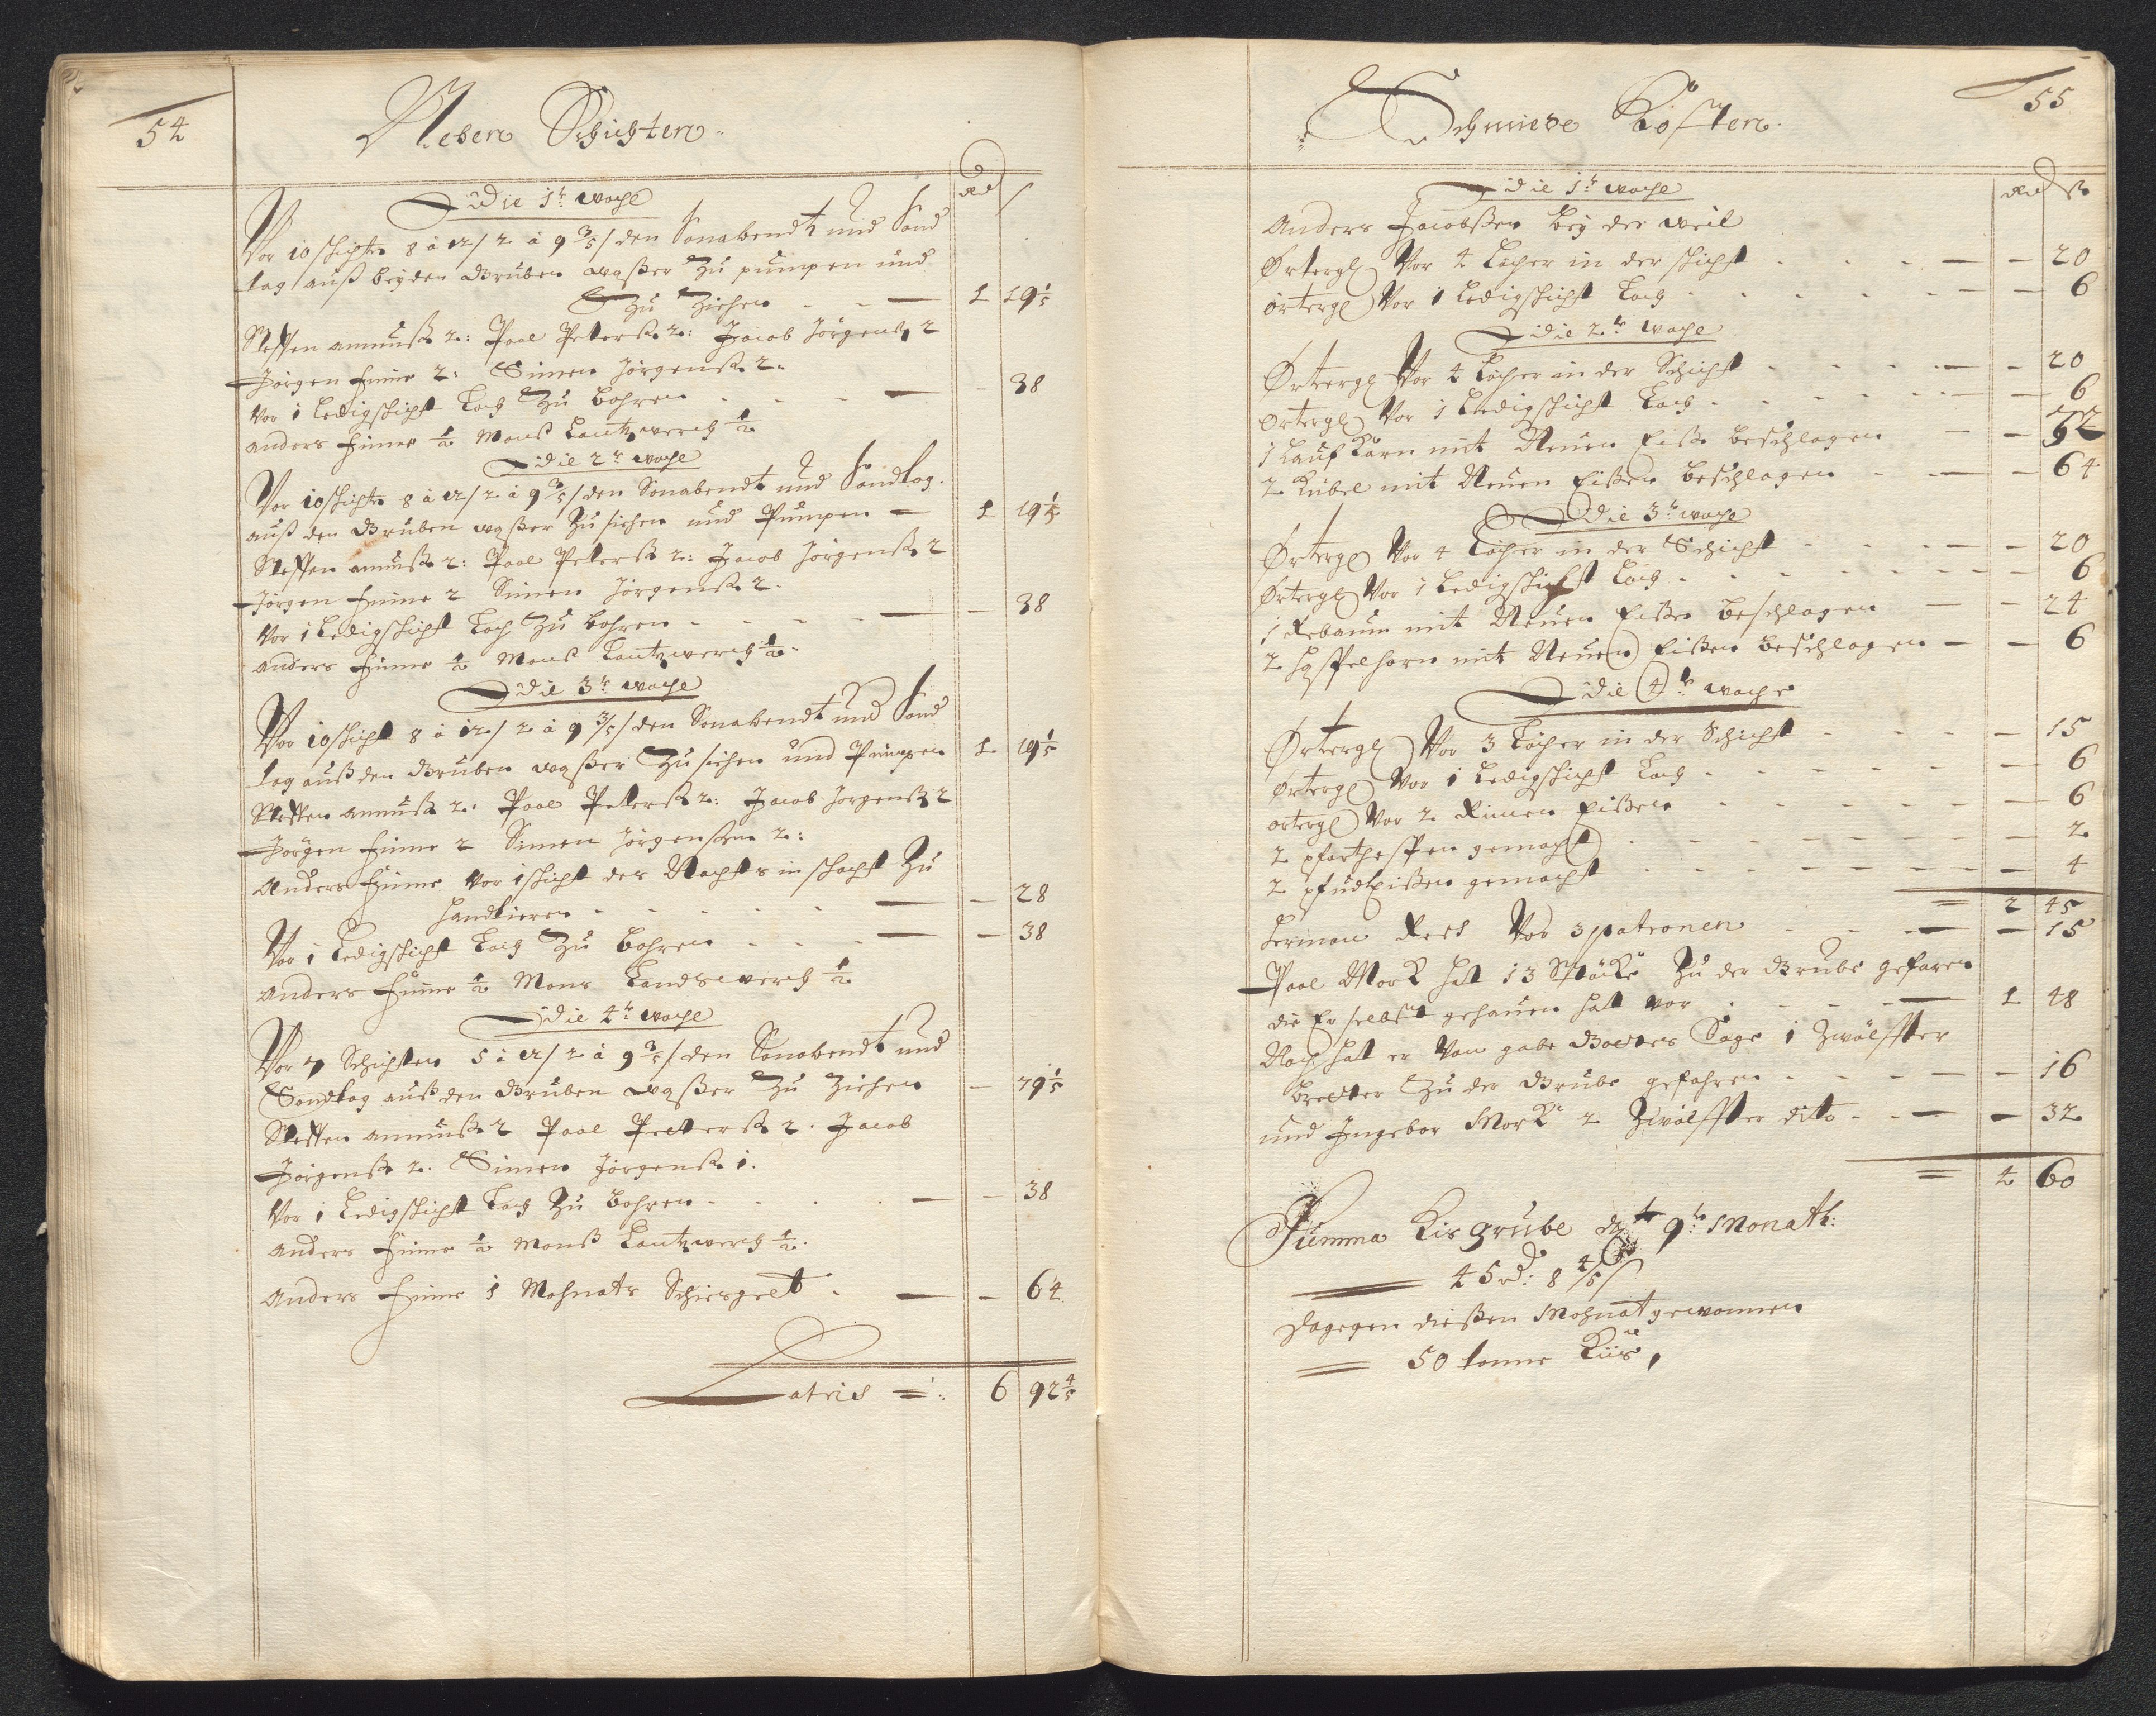 54
Neben Schichten
Rd ß
Die 1te woche
Vor 10 schichten 8 à 12/ 2 à 9 3/5 / den Sonabendt und Sond
tag auß beyden Gruben waßer Zu pumpen und
Zu Ziehen - - — 1 19 1/5
Steffen amunß: 2: Poel Peterß: 2: Jacob Jörgenß 2
Jörgen Finne 2: Simen Jörgenß: 2.
Vor 1 Ledigschicht Loch Zu bohren - - - — - 38
Anders Finne 1/2 Monß Lantzwerch 1/2
Die 2te woche
Vor 10 schichten 8 à 12/ 2 à 9 3/5 / den Sonabendt und Sondtag.
auß den Gruben waßer Zu siehen und Pumpen — 1 19 1/5
Steffen amunß: 2: Poel Peterß 2: Jacob Jörgenß: 2
Jörgen Finne 2 Simen Jörgenß: 2.
Vor 1 Ledigschicht Loch Zu bohren - - - — — 38
Anders Finne 1/2 Monß Lantzwerch 1/2.
Die 3te woche
Vor 10 schicht 8 à 12/ 2 à 9 3/5 / den Sonabendt und Sond
tag auß den Gruben waßer Zu siehen und Pumpen 1 19 1/5
Steffen amunß: 2. Poel Peterß: 2: Jacob Jörgenß: 2
Jörgen Finne 2 Simen Jörgenßen 2:
Anders Finne Vor 1 schicht des Nachts in schacht Zu
handtieren - - - - - — — 28
Vor 1 Ledigschicht Loch Zu bohren - - - — — 38
Anders Finne 1/2 Mons Landswerch 1/2
Die 4te woche
Vor 7 Schichten 5 à 12/ 2 à 9 3/5 / den Sonabendt und
Sondtag auß den Gruben waßer Zu Ziehen — 79 1/5
Steffen amunß: 2 Poel Peterß: 2. Jacob
Jörgenß: 2. Simen Jörgenß: 1.
Vor 1 Ledigschicht Loch Zu bohren - - - — — 38
Anders Finne 1/2 Monß Lantzwerch 1/2.
Anders Finne 1 Mohnats Schiesgelt - — — 64.
Latris = 6 92 4/5
55
Schmiede Kosten.
Rd ß
Die 1te woche
Anders Jacobßen bey der weil
Örtergl Vor 4 Löcher in der schicht - - - — — 20
örtergl Vor 1 Ledigschicht Loch - - - - - — 6
Die 2te woche
Örtergl Vor 4 Löcher in der Schicht - - - — - 20
Örtergl Vor 1 Ledigschicht Loch - - - - — — 6
1 Lauf Karn mit Neuen Eißen beschlagen — — 32
2 Kübel mit Neuen Eißen beschlagen - — — 64
Die 3te woche
Örtergl Vor 4 Löcher in der Schicht - - - — — 20
Örtergl Vor 1 Ledigschicht Loch - - - - - — 6
1 Rebaum mit Neuen Eißen beschlagen — — 24
2 haspelhorn mit Neuen Eißen beschlagen — — 6
Die 4te woche
Örtergl Vor 3 Löcher in der Schicht - - - - — 15
Örtergl Vor 1 Ledigschicht Loch - - - - - — 6
örtergl Vor 2 Rimen Eißen - - - - - — 6
2 pforthespen gemacht - - - - - — 2
2 pfudteißen gemacht - - - - - — 4
= 2 45
Herman Rees Vor 3 patronen - - — — 15
Poel Mork hatt 13 Stöcke Zu der Grube gefaren
die Er selbst gehauen hatt vor - - - — 1 48
Noch hatt er Von gabe Boetres Sage 1 Zwölffter
Bretter Zu der Grube gefahren - - - — — 16
und Ingebor Mork 2 Zwölffter ditto - - — — 32
= 4 60
Summa Kisgrube den 9te Monath:
— 45 rd: 8 4/5 ß
Dagegen dießen Mohnat gewonnen
= 50 tonne Kiis,